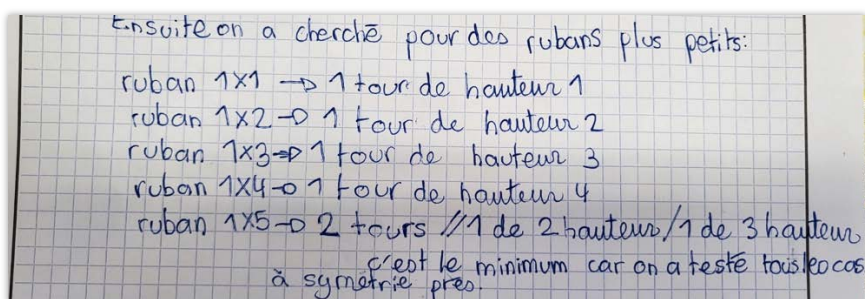 Ensuite on a cherché pour des rubans plus petits:
ruban 1x1 → 1 tour de hauteur 1
ruban 1x2 → 1 tour de hauteur 2
ruban 1x3 → 1 tour de hauteur 3
ruban 1x4 → 1 tour de hauteur 4
ruban 1x5 → 2 tours // 1 de 2 hauteur / 1 de 3 hauteur
c'est le minimum car on a testé tous les cas
à symétrie près.